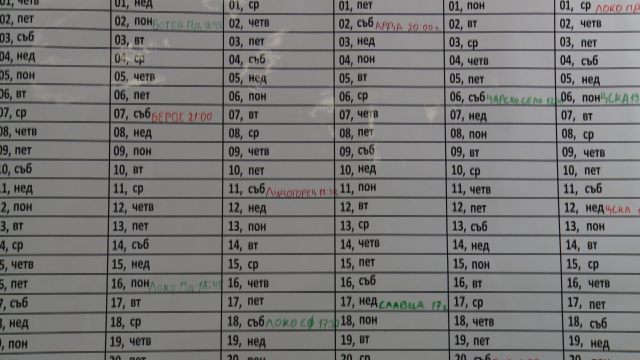 01, четв 01, нед 01, ср 01, пет 01, пон 01, ср ЛОКО
02, пет 02, пон БОТЕВ 02, четв 02, съб АРДА 20:00 02, вт 02, четв
03, съб 03, вт 03, пет 03, нед 03, ср 03, пет
04, нед 04, ср 04, съб 04, пон 04, четв 04, съб
05, пон 05, четв 05, нед 05, вт 05, пет 05, нед
06, вт 06, пет 06, пон 06, ср 06, съб ЦАРСКО СЕЛО 06, пон ЦСКА
07, ср 07, съб БЕРОЕ 21:00 07, вт 07, четв 07, нед 07, вт
08, четв 08, нед 08, ср 08, пет 08, пон 08, ср
09, пет 09, пон 09, четв 09, съб 09, вт 09, четв
10, съб 10, вт 10, пет 10, нед 10, ср 10, пет
11, нед 11, ср 11, съб ЛУДОГОРЕЦ 11, пон 11, четв 11, съб
12, пон 12, четв 12, нед 12, вт 12, пет 12, нед ЦСКА
13, вт 13, пет 13, пон 13, ср 13, съб 13, пон
14, ср 14, съб 14, вт 14, четв 14, нед 14, вт
15, четв 15, нед 15, ср 15, пет 15, пон 15, ср
16, пет 16, пон ЛОКО ПД 18:45 16, четв 16, съб 16, вт 16, четв
17, съб 17, вт 17, пет 17, нед СЛАВИЯ 17, ср 17, пет
18, нед 18, ср 18, съб ЛОКО СФ 18, пон 18, четв 18, съб
19, пон 19, четв 19, нед 19, вт 19, пет 19, нед
20, пет 20, пон 20, ср